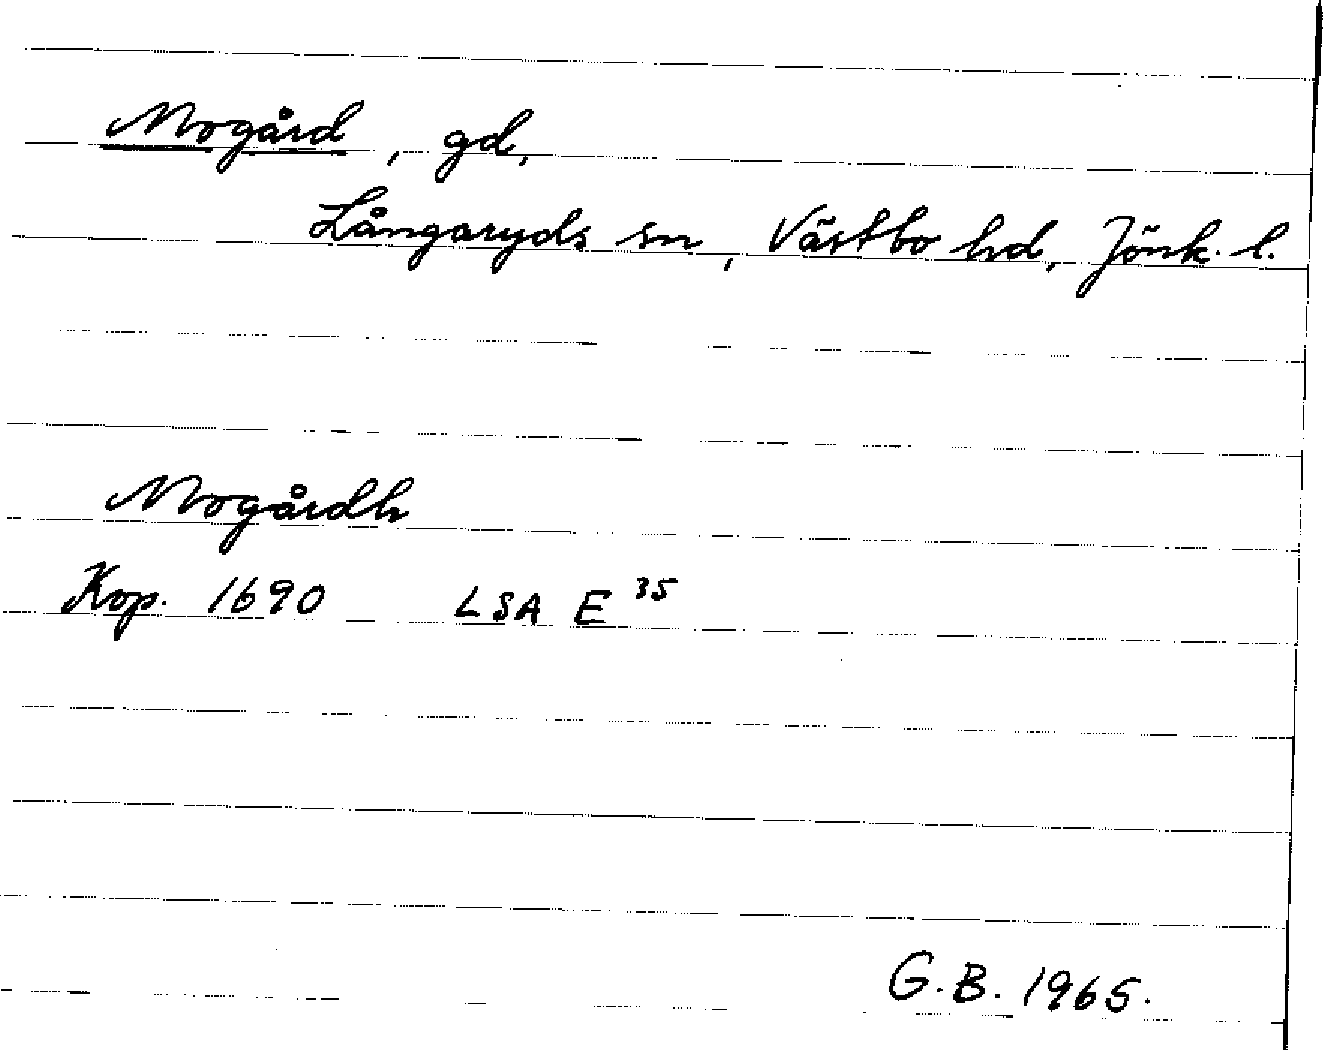 Mogård, gd,
Långaryds sn, Västbo hd, Jönk. l.
Mogårdh
Kop. 1690 LSA E 35
G.B. 1965.